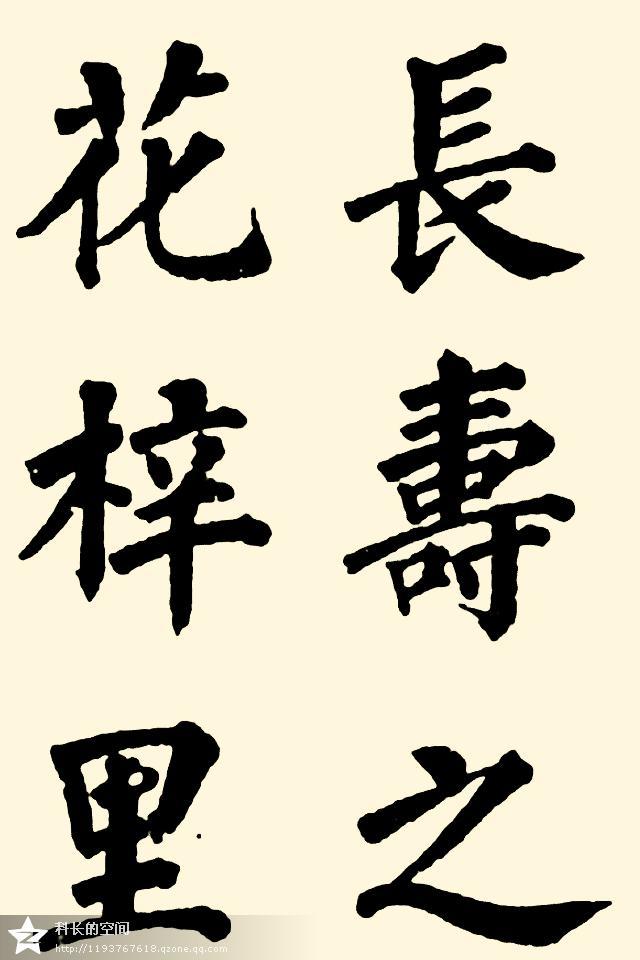 長壽之
花梓里
科长的空间
http://1193767618.qzone.qq.com